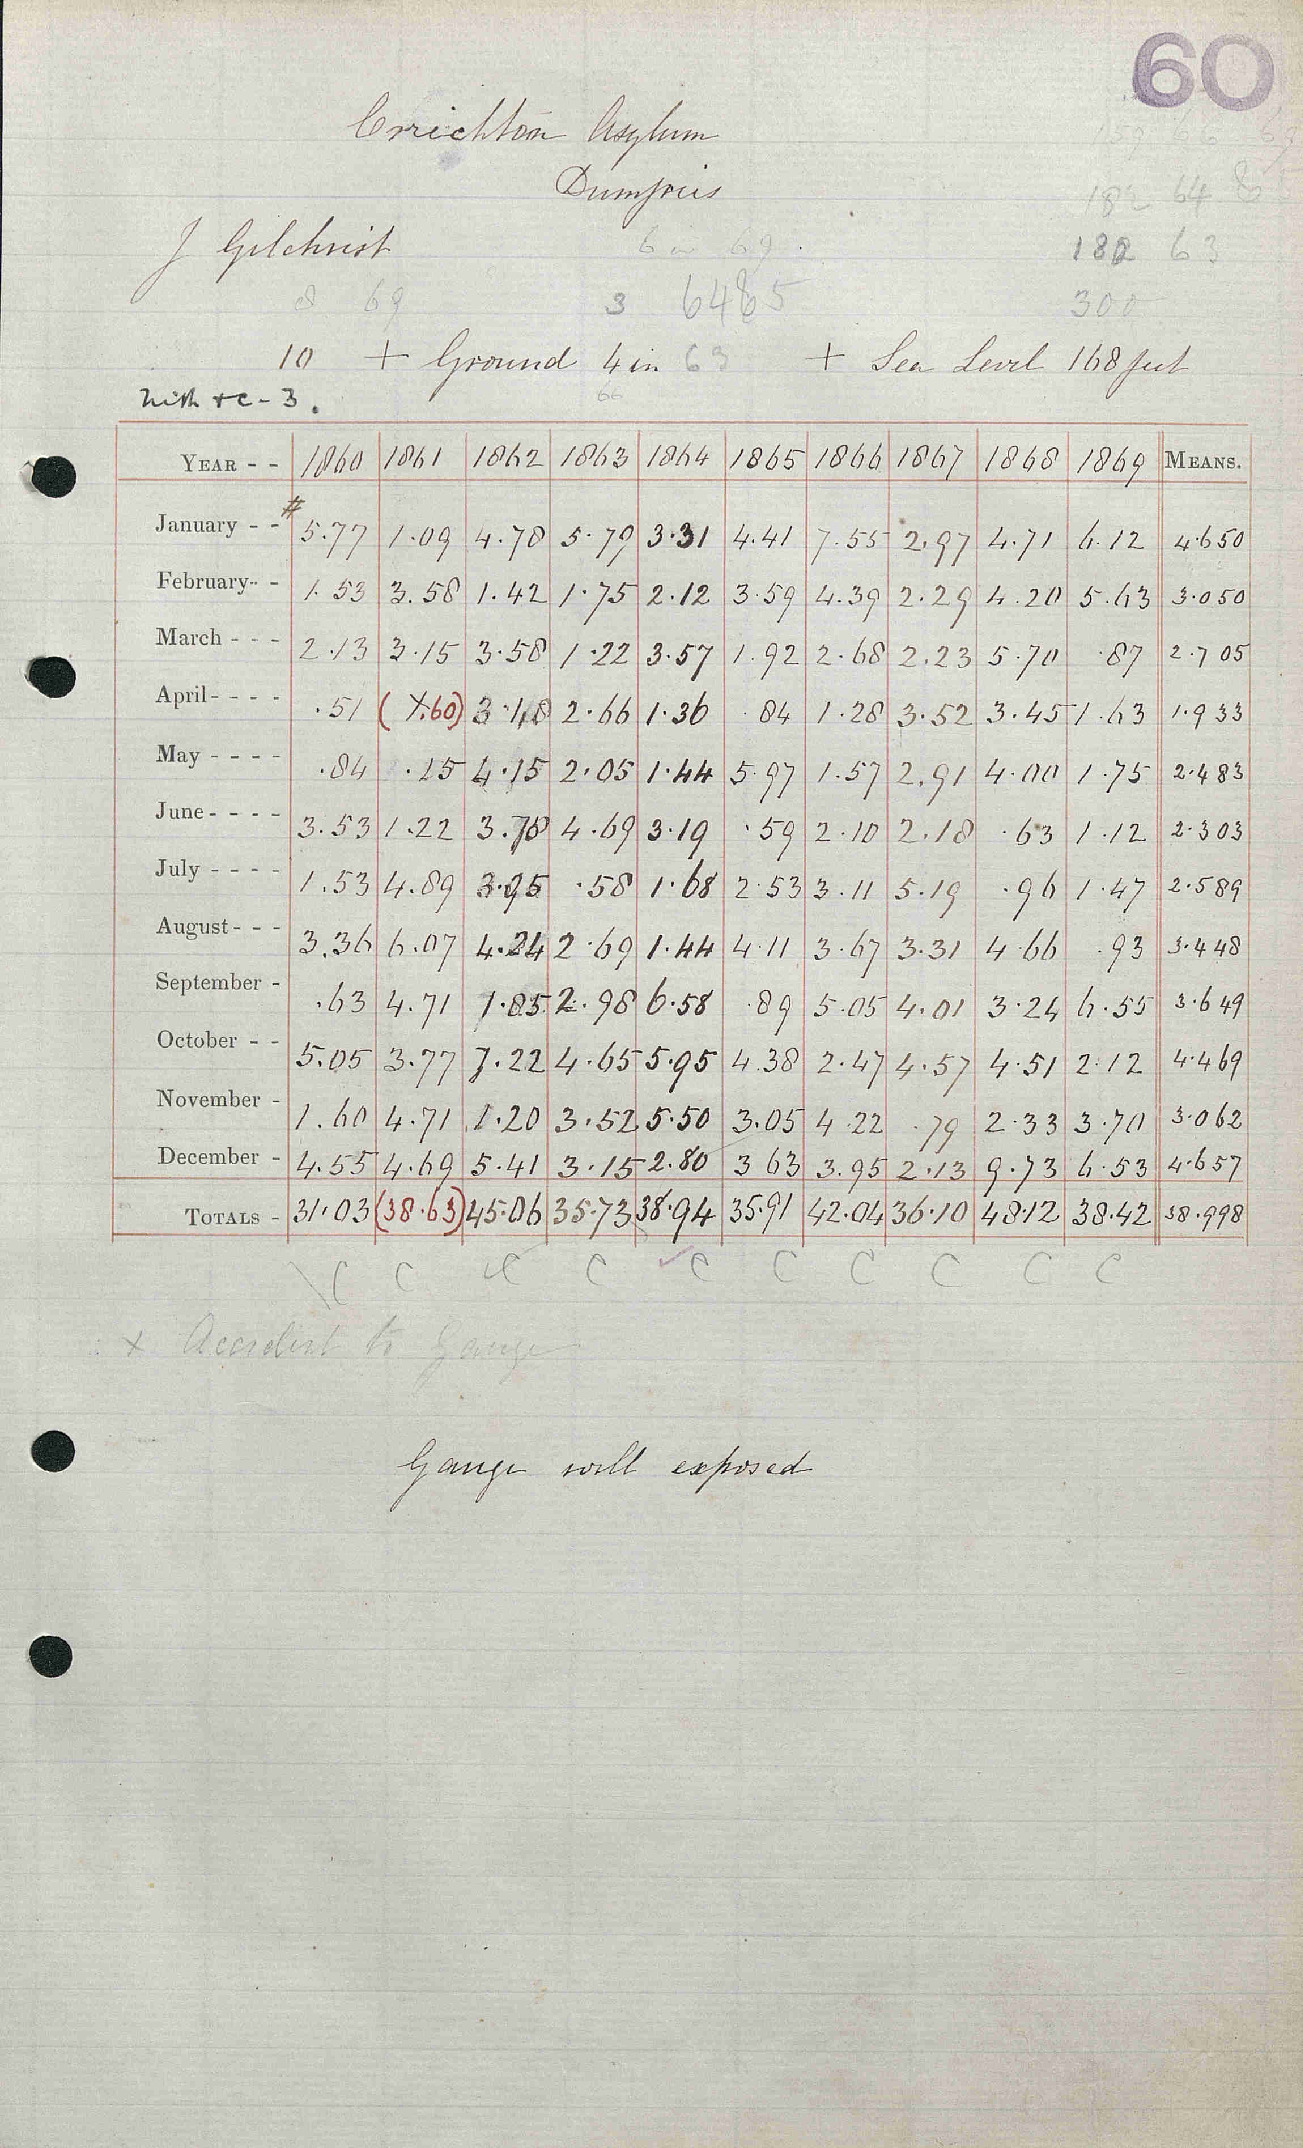 60
Crrichton Asylum
182 64
Dumfries
J Gilchrist 6 in 69 182 63
8 69 3 6485 300
10 + Ground 4 in 63 + Sea Level 168 feet
66
Nith &c - 3.
YEAR - - 1860 1861 1862 1863 1864 1865 1866 1867 1868 1869 MEANS.
January - - # 5.77 1.09 4.78 5.79 3.31 4.41 7.55 2.97 4.71 6.12 4.650
February - - 1.53 3.58 1.42 1.75 2.12 3.59 4.39 2.29 4.20 5.63 3.050
March - - - 2.13 3.15 3.58 1.22 3.57 1.92 2.68 2.23 5.70 .87 2.705
April - - - - .51 (X.60) 3.48 2.66 1.36 .84 1.28 3.52 3.45 1.63 1.933
May - - - - .84 .15 4.15 2.05 1.44 5.97 1.57 2.91 4.00 1.75 2.483
June - - - - 3.53 1.22 3.78 4.69 3.19 .59 2.10 2.18 .63 1.12 2.303
July - - - - 1.53 4.89 3.95 .58 1.68 2.53 3.11 5.19 .96 1.47 2.589
August - - - 3.36 6.07 4.24 2.69 1.44 4.11 3.67 3.31 4.66 .93 3.448
September - .63 4.71 1.85 2.98 6.58 .89 5.05 4.01 3.24 6.55 3.649
October - - 5.05 3.77 7.22 4.65 5.95 4.38 2.47 4.57 4.51 2.12 4.469
November - 1.60 4.71 1.20 3.52 5.50 3.05 4.22 .79 2.33 3.70 3.062
December - 4.55 4.69 5.41 3.15 2.80 3.63 3.95 2.13 9.73 6.53 4.657
TOTALS - 31.03 (38.63) 45.06 35.73 38.94 35.91 42.04 36.10 48.12 38.42 38.998
C C C C C C C C C C
x Accident to Gauge
Gauge well exposed